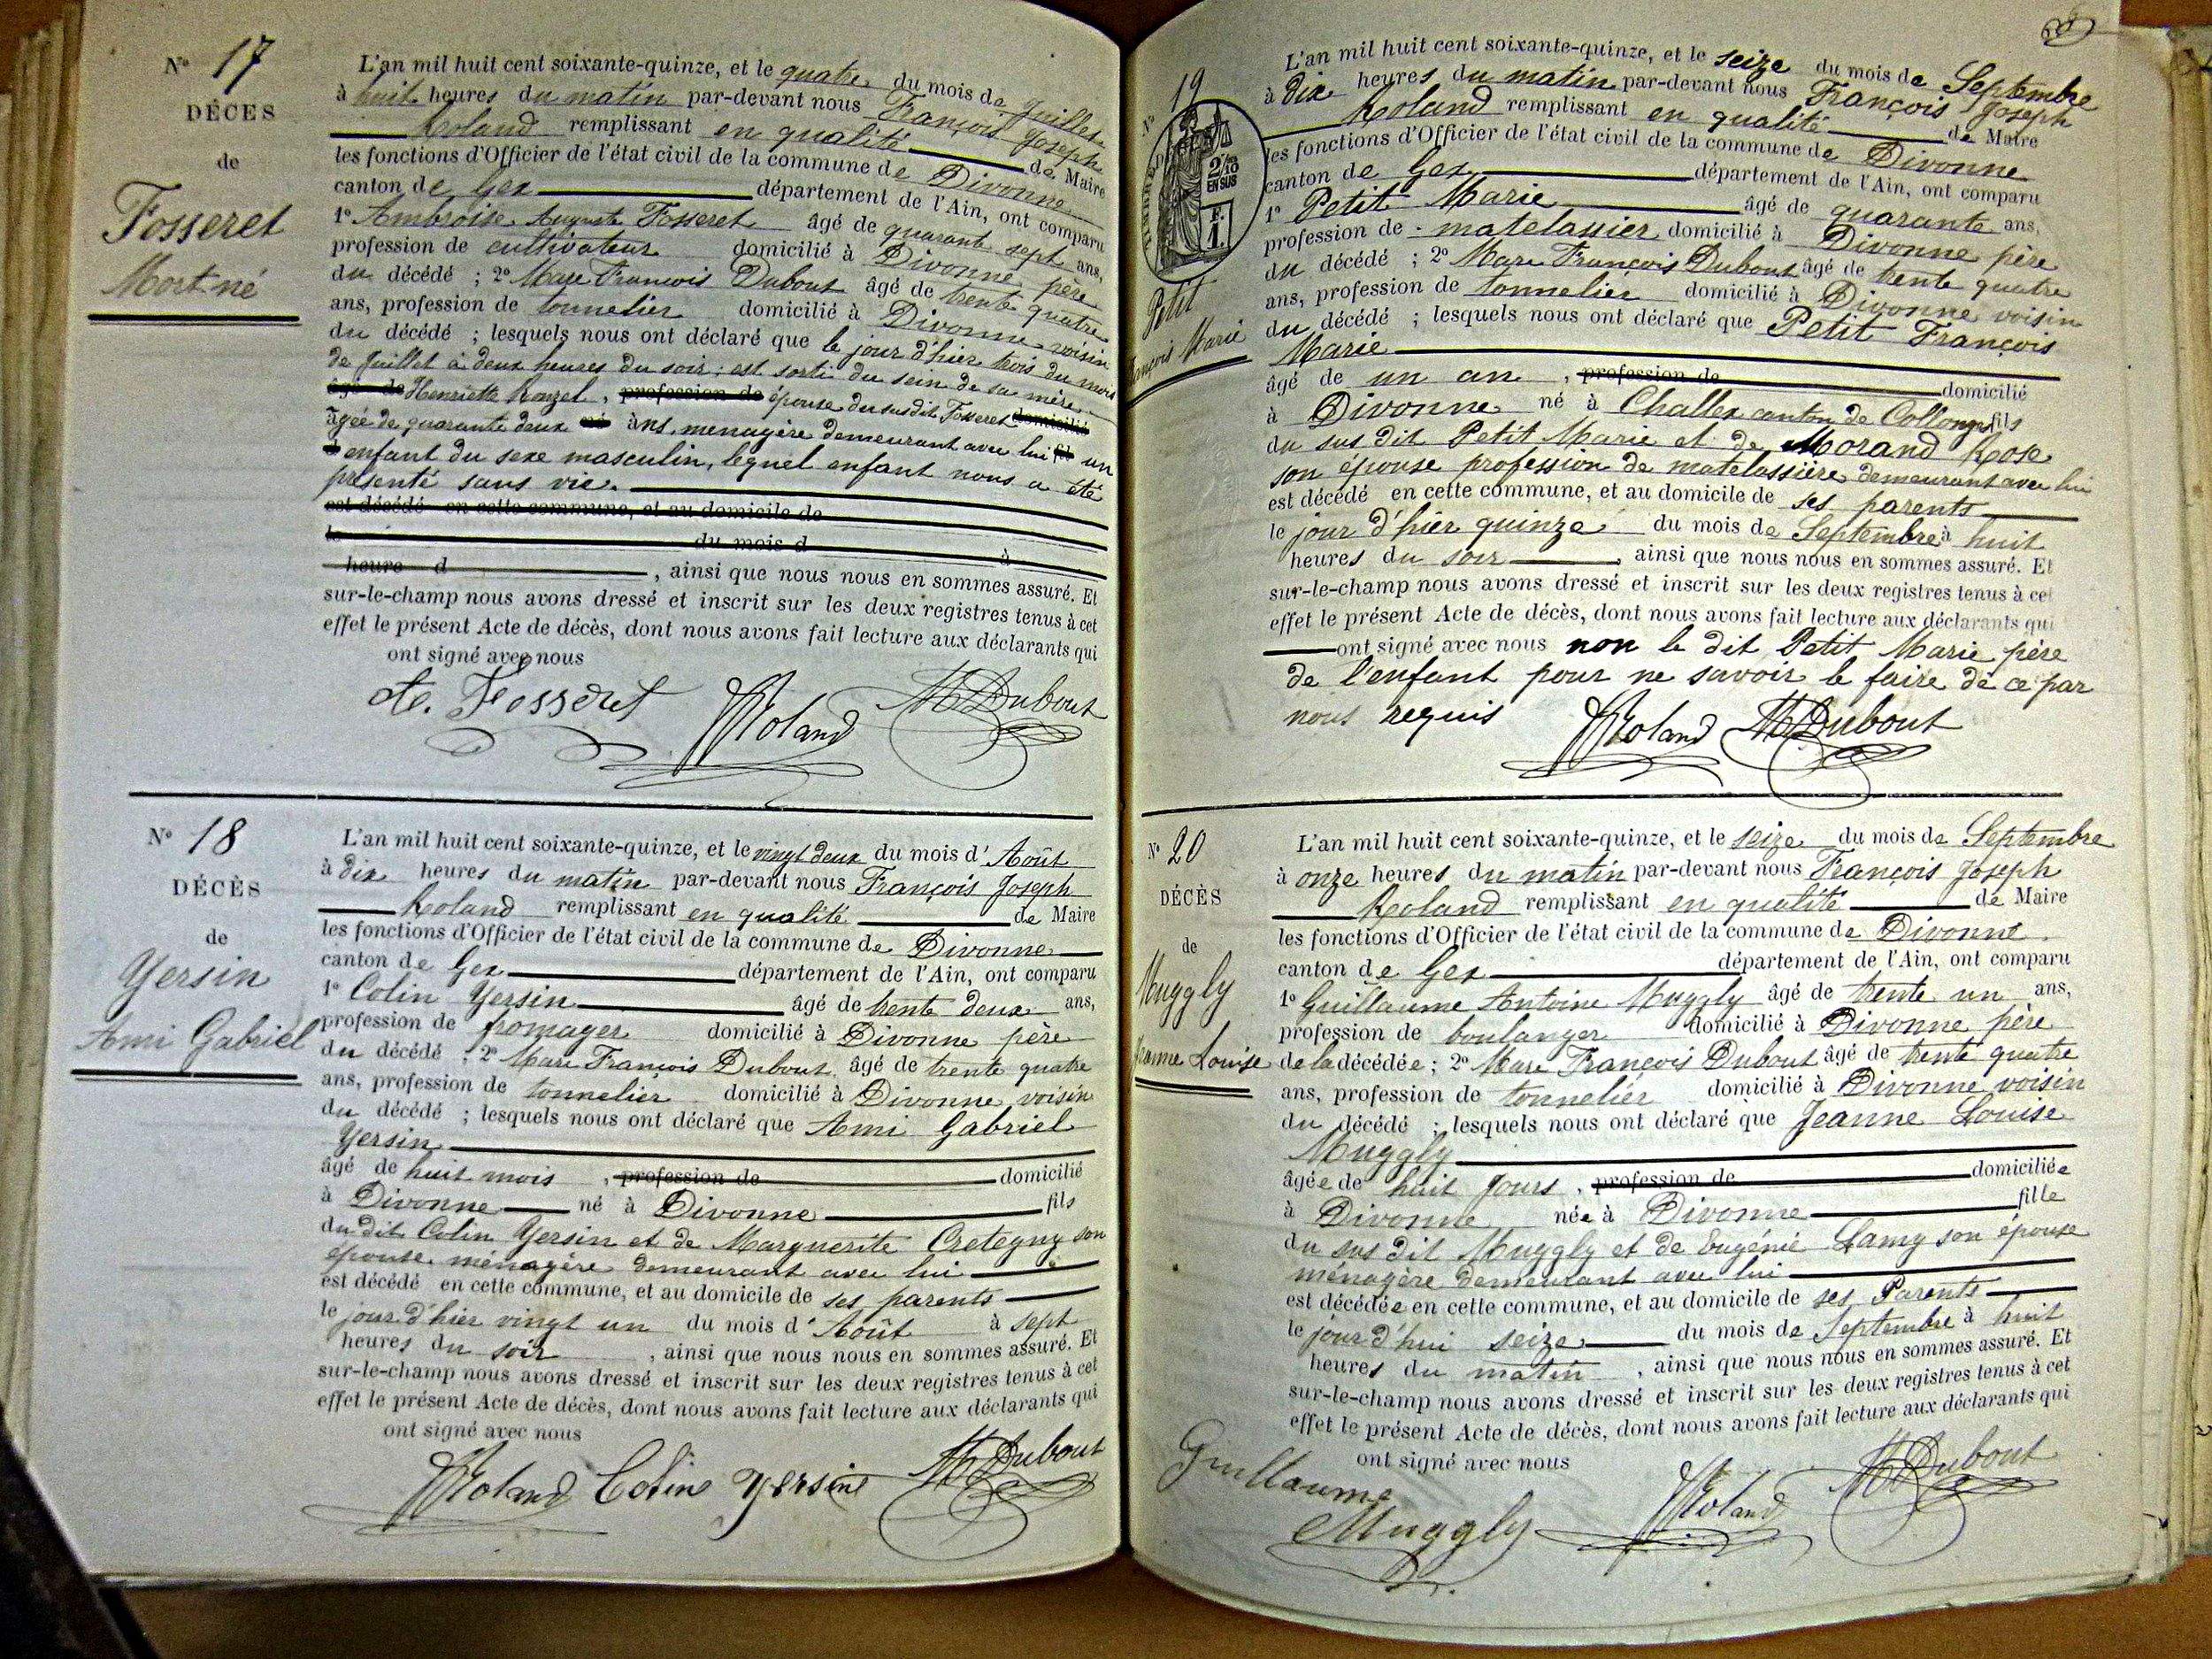 N° 17
DÉCES
de
Fosseret
Mort né
L'an mil huit cent soixante-quinze, et le quatre du mois de Juillet
à huit heures du matin par-devant nous François Joseph
Roland remplissant en qualité de Maire
les fonctions d'Officier de l'état civil de la commune de Divonne
canton de Gex département de l'Ain, ont comparu
1° Ambroise Auguste Fosseret âgé de quarante sept ans,
profession de cultivateur domicilié à Divonne père
du décédé ; 2° Marc François Dubout âgé de trente quatre
ans, profession de tonnelier domicilié à Divonne voisin
du décédé ; lesquels nous ont déclaré que le jour d'hier trois du mois
de Juillet à deux heures du soir ; est sorti du sein de sa mère
âgé de Henriette , profession de épouse du susdit Fosseret domicilié
âgée de quarante deux né ans, menagère demeurant avec lui fils un
enfant du sexe masculin, lequel enfant nous a été
présenté sans vie.
est décédé en cette commune, et au domicile de
le du mois d à
heure d , ainsi que nous nous en sommes assuré. Et
sur-le-champ nous avons dressé et inscrit sur les deux registres tenus à cet
effet le présent Acte de décès, dont nous avons fait lecture aux déclarants qui
ont signé avec nous
A. Fosseret Roland Dubout
N° 18
DÉCÈS
de
Yersin
Ami Gabriel
L'an mil huit cent soixante-quinze, et le vingt deux du mois d'Août
à dix heures du matin par-devant nous François Joseph
Roland remplissant en qualité de Maire
les fonctions d'Officier de l'état civil de la commune de Divonne
canton de Gex département de l'Ain, ont comparu
1° Colin Yersin âgé de trente deux ans,
profession de fromager domicilié à Divonne père
du décédé ; 2° Marc François Dubout âgé de trente quatre
ans, profession de tonnelier domicilié à Divonne voisin
du décédé ; lesquels nous ont déclaré que Ami Gabriel
Yersin
âgé de huit mois , profession de domicilié
à Divonne né à Divonne fils
du dit Colin Yersin et de Marguerite Cretegny son
épouse, ménagère demeurant avec lui
est décédé en cette commune, et au domicile de ses parents
le jour d'hier vingt un du mois d'Août à sept
heures du soir , ainsi que nous nous en sommes assuré. Et
sur-le-champ nous avons dressé et inscrit sur les deux registres tenus à cet
effet le présent Acte de décès, dont nous avons fait lecture aux déclarants qui
ont signé avec nous
Roland Colin Yersin Dubout
N° 19
2/10
EN SUS
F.
1.
Petit
Marie
L'an mil huit cent soixante-quinze, et le seize du mois de Septembre
à dix heures du matin par-devant nous François Joseph
Roland remplissant en qualité de Maire
les fonctions d'Officier de l'état civil de la commune de Divonne
canton de Gex département de l'Ain, ont comparu
1° Petit Marie âgé de quarante ans,
profession de matelassier domicilié à Divonne père
du décédé ; 2° Marc François Dubout âgé de trente quatre
ans, profession de tonnelier domicilié à Divonne voisin
du décédé ; lesquels nous ont déclaré que Petit François
Marie
âgé de un an , profession de domicilié
à Divonne né à Challex canton de Collonges fils
du sus dit Petit Marie et de Morand Rose
son épouse profession de matelassière demeurant avec lui
est décédé en cette commune, et au domicile de ses parents
le jour d'hier quinze du mois de Septembre à huit
heures du soir , ainsi que nous nous en sommes assuré. Et
sur-le-champ nous avons dressé et inscrit sur les deux registres tenus à cet
effet le présent Acte de décès, dont nous avons fait lecture aux déclarants qui
ont signé avec nous non le dit Petit Marie père
de l'enfant pour ne savoir le faire de ce par
nous requis Roland Dubout
N° 20
DÉCÈS
de
Muggly
Jeanne Louise
L'an mil huit cent soixante-quinze, et le seize du mois de Septembre
à onze heures du matin par-devant nous François Joseph
Roland remplissant en qualité de Maire
les fonctions d'Officier de l'état civil de la commune de Divonne
canton de Gex département de l'Ain, ont comparu
1° Guillaume Antoine Muggly âgé de trente un ans,
profession de boulanger domicilié à Divonne père
de la décédée ; 2° Marc François Dubout âgé de trente quatre
ans, profession de tonnelier domicilié à Divonne voisin
du décédé ; lesquels nous ont déclaré que Jeanne Louise
Muggly
âgée de huit jours , profession de domiciliée
à Divonne née à Divonne fille
du sus dit Muggly et de Eugénie Lamy son épouse
ménagère demeurant avec lui
est décédée en cette commune, et au domicile de ses Parents
le jour d'hui seize du mois de Septembre à huit
heures du matin , ainsi que nous nous en sommes assuré. Et
sur-le-champ nous avons dressé et inscrit sur les deux registres tenus à cet
effet le présent Acte de décès, dont nous avons fait lecture aux déclarants qui
ont signé avec nous
Guillaume
Muggly Roland Dubout